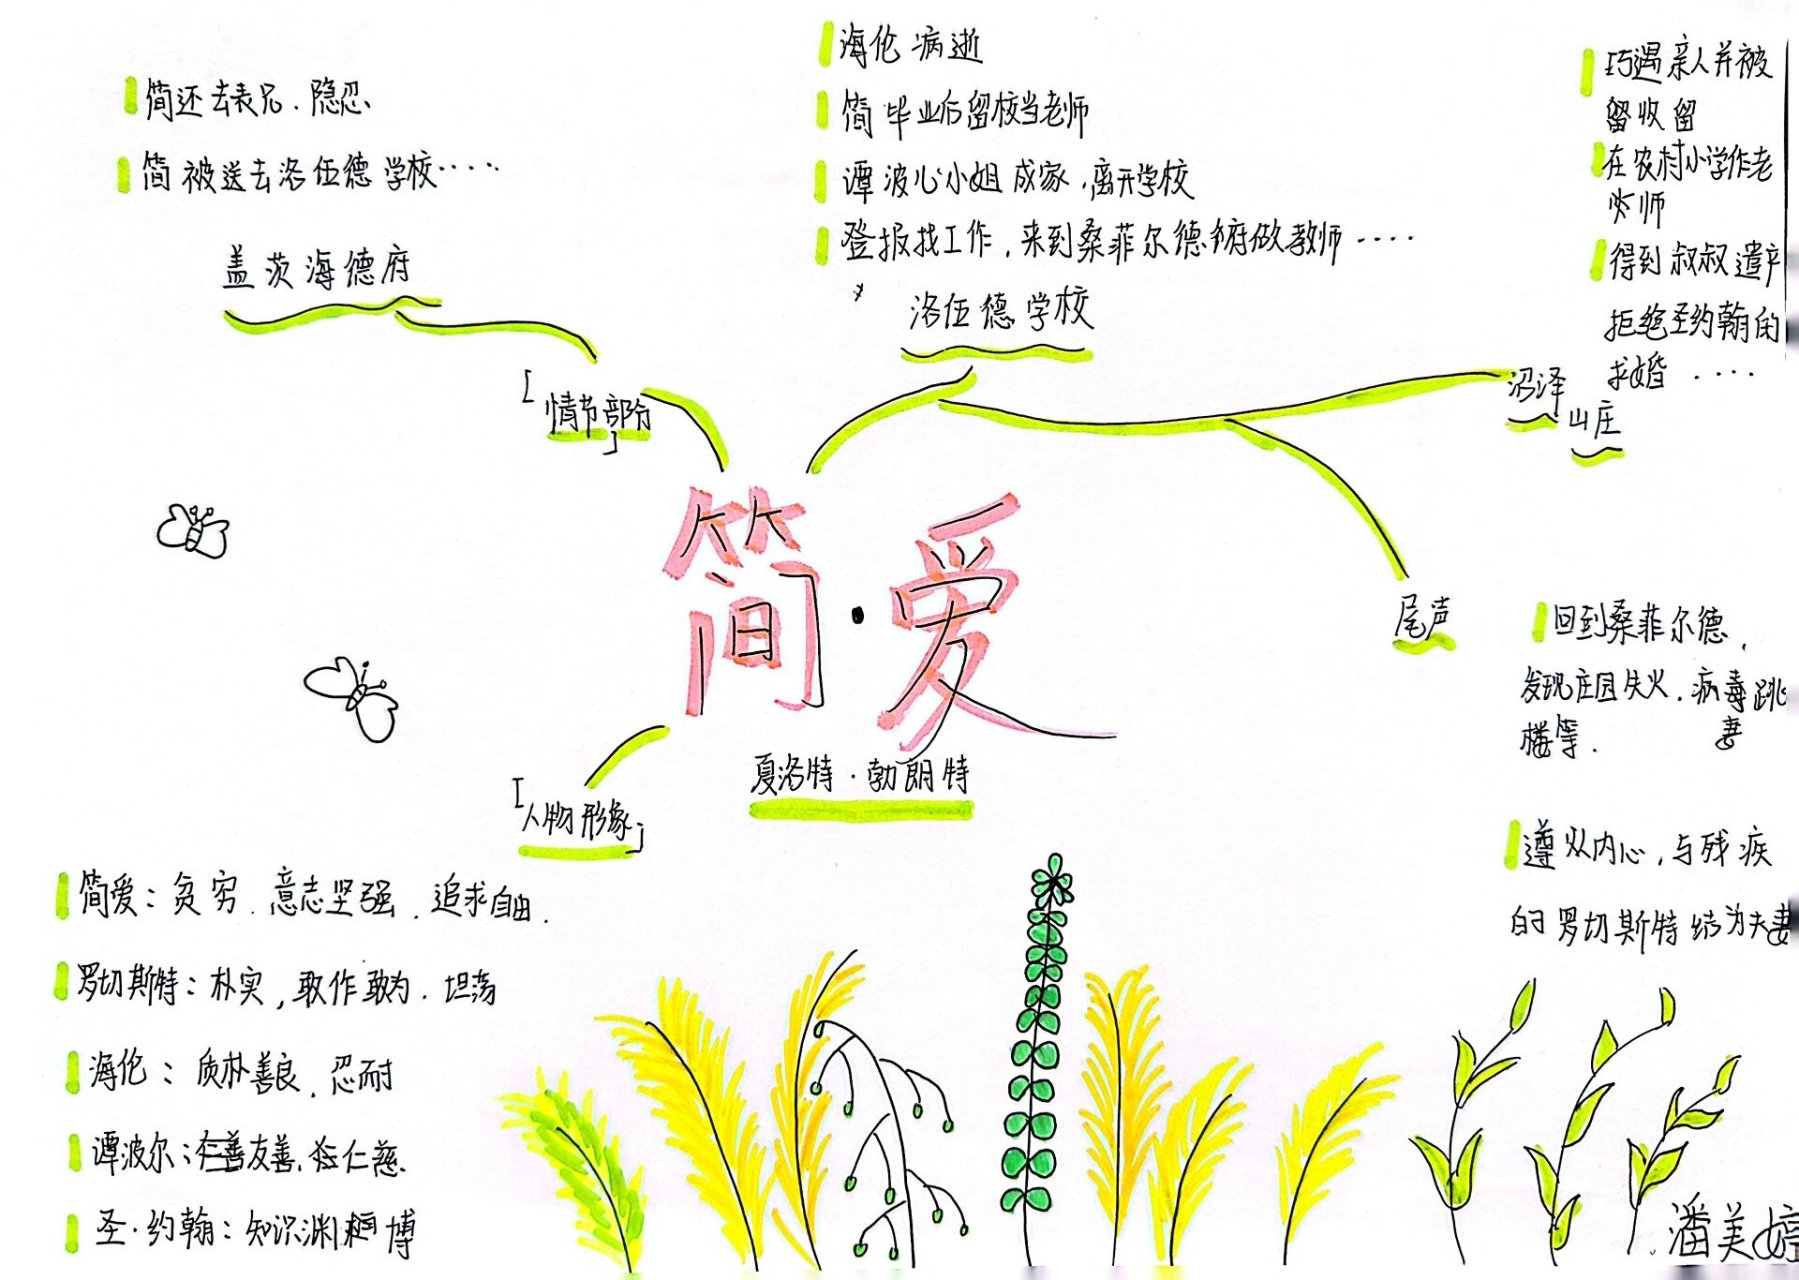 简还去表兄.隐忍
简被送去洛伍德学校····
盖茨海德府
海伦病逝
简毕业后留校当老师
谭波心小姐成家,离开学校
登报找工作,来到桑菲尔德府做教师····
洛伍德学校
巧遇亲人并被
留收留
在农村小学作老
师
得到叔叔遗产
拒绝圣约翰的
求婚····
沼泽
山庄
「情节部分」
简·爱
夏洛特·勃朗特
尾声
回到桑菲尔德,
发现庄园失火.病毒跳
楼等.
妻
遵从内心,与残疾
的罗切斯特结为夫妻
「人物形象」
简爱:贫穷.意志坚强.追求自由.
罗切斯特:朴实,敢作敢为.坦荡
海伦:质朴善良.忍耐
谭波尔:友善.仁慈.
圣·约翰:知识渊博
潘美婷